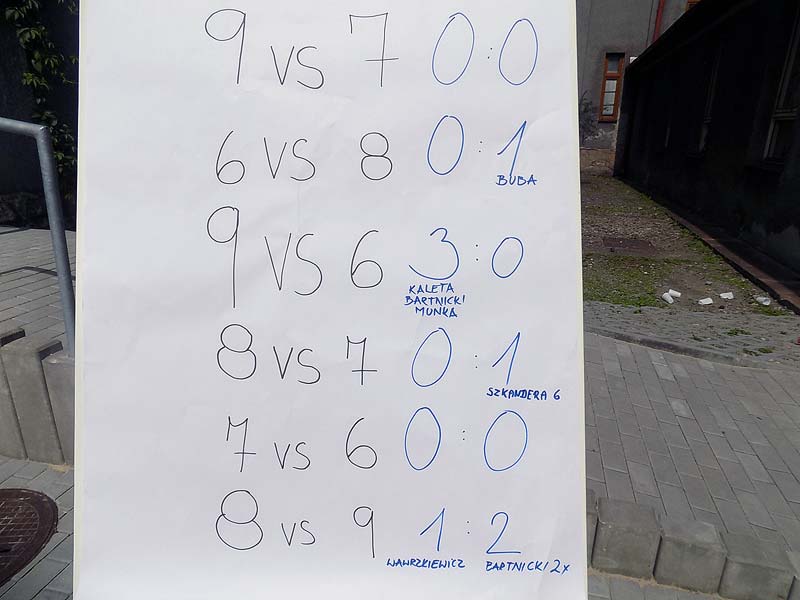 9 vs 7 0:0
6 VS 8 0:1
BUBA
9 VS 6 3:0
KALETA
BARTNICKI
MUNKA
8 VS 7 0:1
SZKANDERA 6
7 VS 6 0:0
8 VS 9 1:2
WAWRZKIEWICZ BARTNICKI 2x